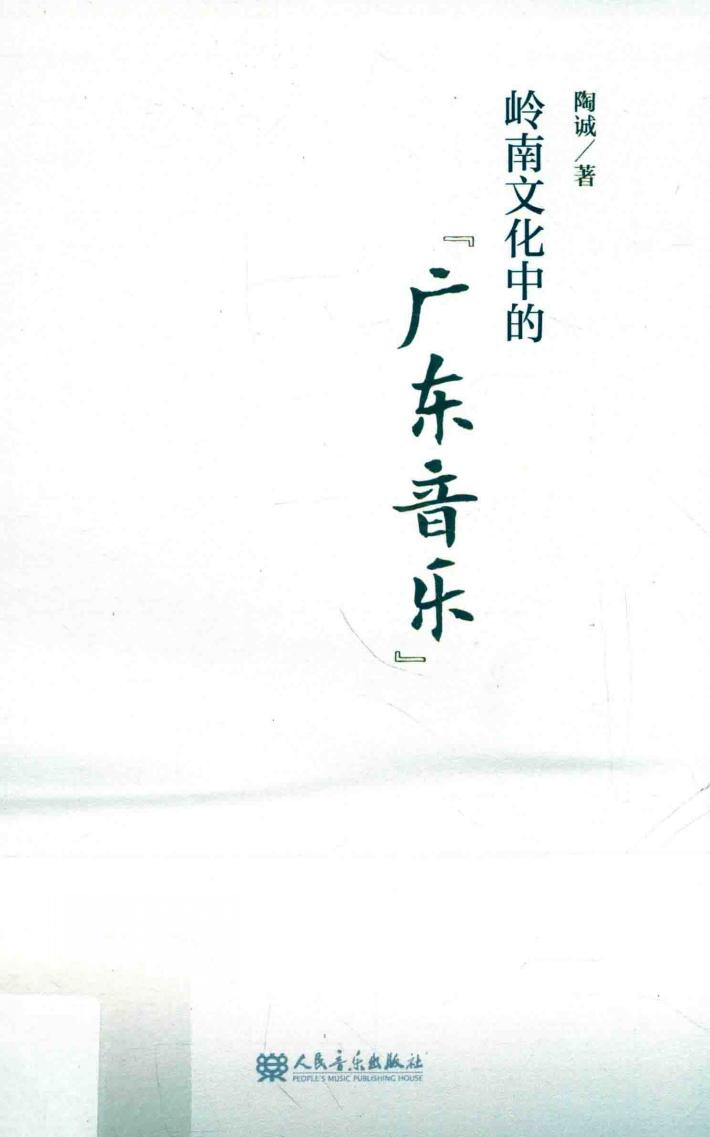 陶诚/著
岭南文化中的
『广东音乐』
人民音乐出版社
PEOPLE'S MUSIC PUBLISHING HOUSE